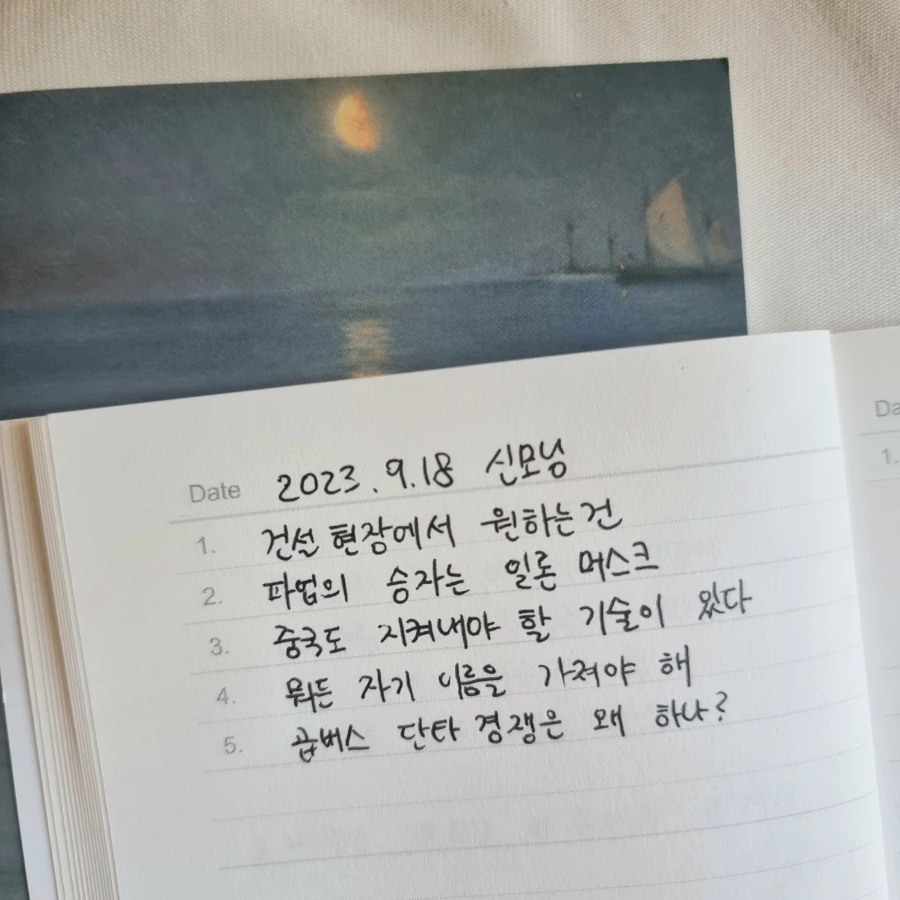 Date 2023.9.18 신모닝
1. 건설 현장에서 원하는건
2. 파업의 승자는 일론 머스크
3. 중국도 지켜내야 할 기술이 있다
4. 뭐든 자기 이름을 가져야 해
5. 곱버스 단타 경쟁은 왜 하나?
Da
1.